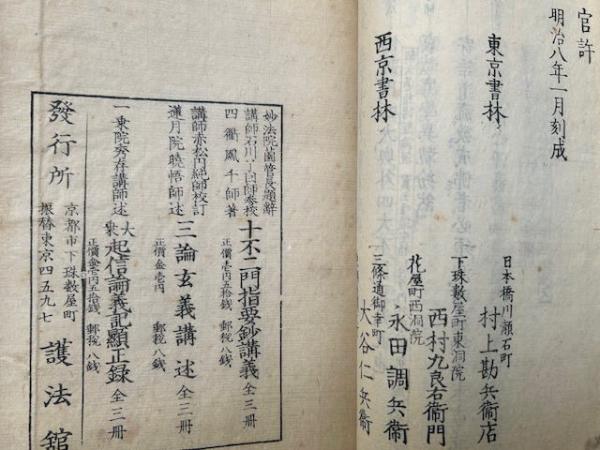 官許
明治八年一月刻成
東京書林
日本橋川瀬石町
村上勘兵衞店
西京書林
下珠數屋町東洞院
西村九良右衞門
花屋町西洞院
永田調兵衞
三條通御幸町
大谷仁兵衞
妙法院菌管長題辭
講師石川了因師參校
四衢鳳千師著
十不二門指要鈔講義 全三冊
正價金壱円五拾錢 郵税八錢
講師赤松円純師校訂
蓮月院曉悟師述
三論玄義講述 全三冊
正價金壱円 郵税八錢
一乗院秀存講師述
大乗起信論義記顯正録 全三冊
正價金壱円五拾錢 郵税八錢
發行所
京都市下珠數屋町
振替東京四五九七
護法舘